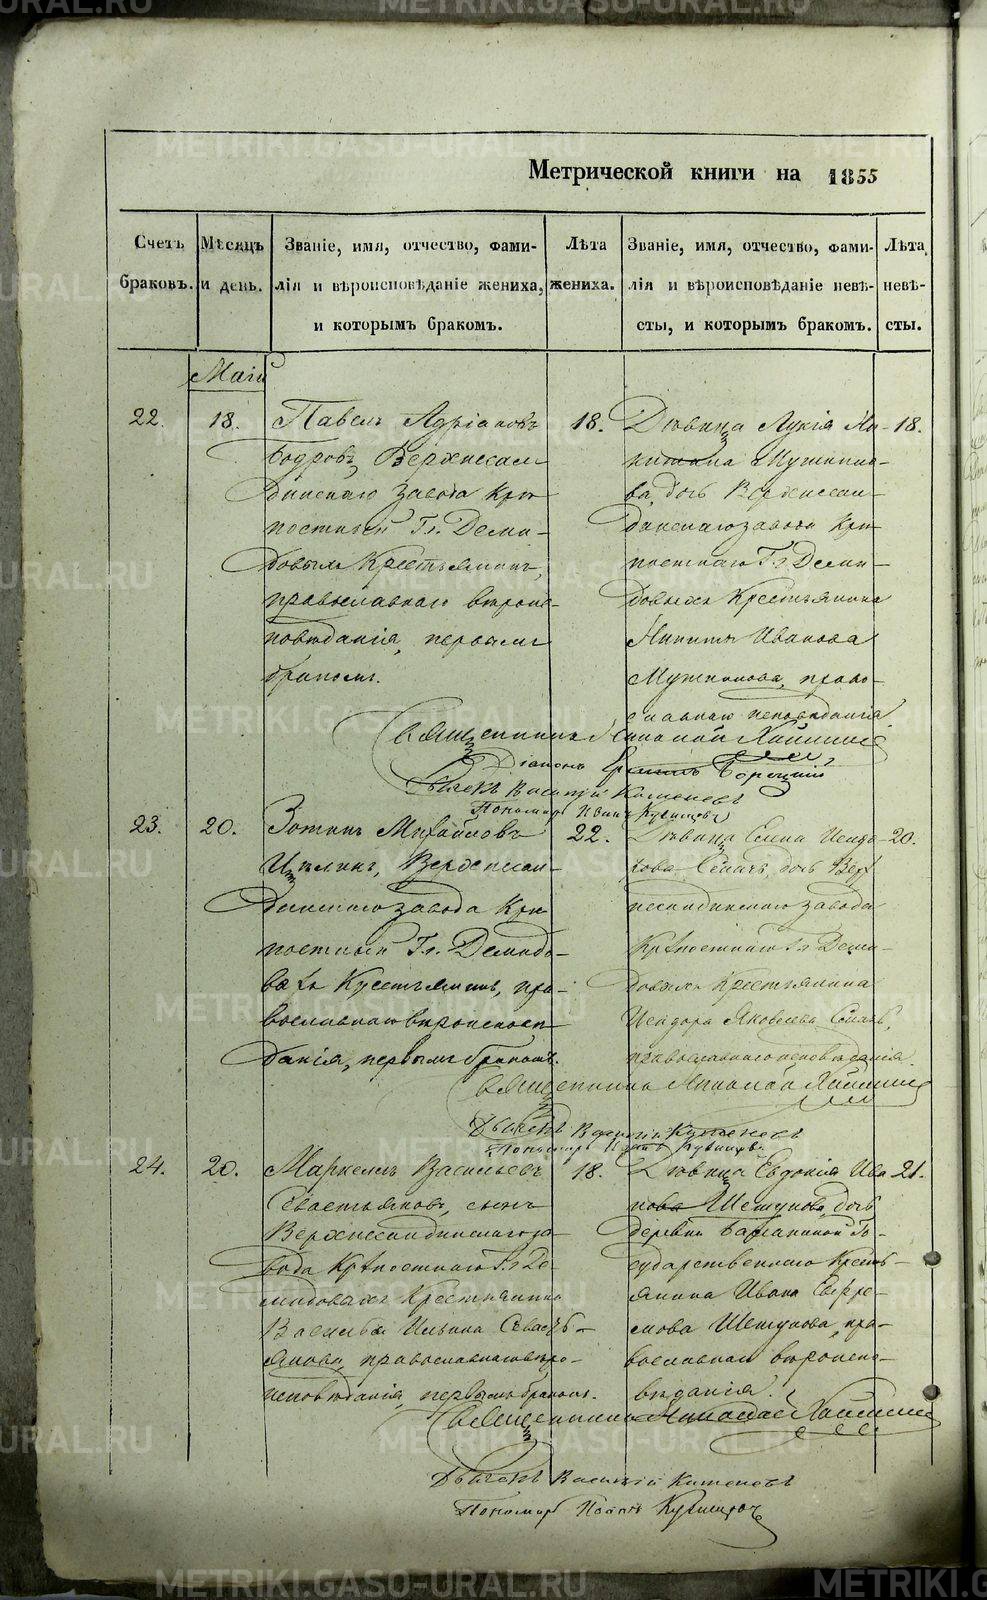 METRIKI.GASO-URAL.RU
Метрической книги на 1855
Счетъ браковъ.
Мѣсяцъ и день.
Званіе, имя, отчество, фами-
лія и вѣроисповѣданіе жениха,
и которымъ бракомъ.
Лѣта жениха.
Званіе, имя, отчество, фами-
лія и вѣроисповѣданіе невѣ-
сты, и которымъ бракомъ.
Лѣта невѣ-
сты.
Маія
22.
18.
Павелъ Адріановъ
Бодровъ, Верхнесал-
динскаго завода Крѣ-
постный Гг. Деми-
довыхъ Крестьянинъ,
православнаго вѣроис-
повѣданія, первымъ
бракомъ.
18.
Дѣвица Лукія Ни-
китина
ва, дочь Верхнесал-
динскаго завода Крѣ-
постнаго Гг. Деми-
довыхъ Крестьянина
Никиты Иванова
право-
славнаго исповѣданія
18.
Священникъ Николай
Діаконъ
Дьячекъ Василій
Пономарь Иванъ Кузнецовъ
23.
20.
Зотикъ Михайловъ
Верхнесал-
динскаго завода Крѣ-
постный Гг. Демидо-
выхъ Крестьянинъ, пра-
вославнаго вѣроисповѣ-
данія, первымъ бракомъ.
22.
Дѣвица Елена Исидо-
рова дочь Верх
несалдинскаго завода
Крѣпостнаго Гг. Деми-
довыхъ Крестьянина
Исидора Яковлева
православнаго исповѣданія
20.
Священникъ Николай
Дьячекъ Василій
Пономарь Иванъ Кузнецовъ
24.
20.
Маркеллъ Васильевъ
Севастьяновъ, сынъ
Верхнесалдинскаго за-
вода Крѣпостнаго Гг. Де-
мидовыхъ Крестьянина
Василья Ильина Севасть-
янова, православнаго вѣро-
исповѣданія, первымъ бракомъ.
18.
Дѣвица Евдокія Ива
нова Шестунова, дочь
деревни Го-
сударственнаго Кресть-
янина Ивана
Шестунова, пра-
вославнаго вѣроиспо-
вѣданія.
21.
Священникъ Николай
Дьячекъ Василій
Пономарь Иванъ Кузнецовъ